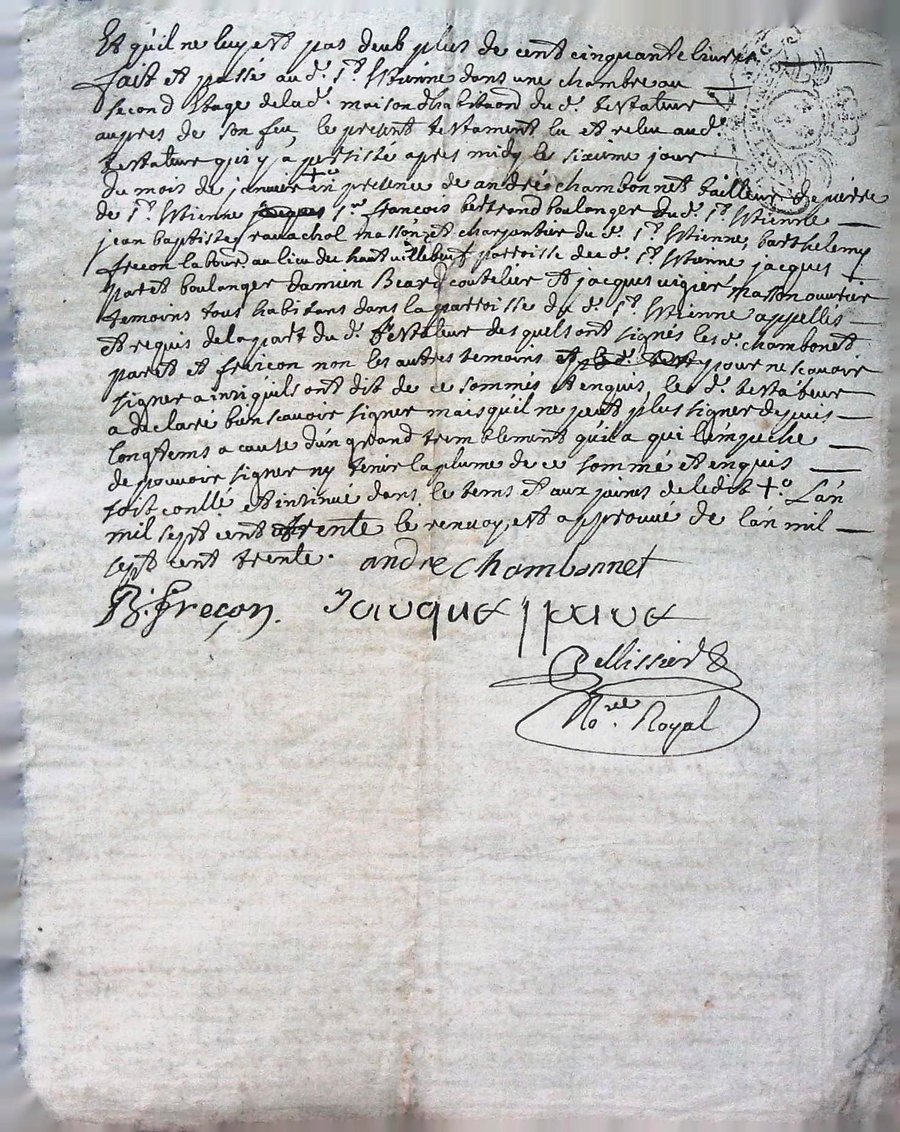 Et qu'il ne luy est pas deub plus de cent cinquante livres
fait et passé aud. St. Etienne dans une chambre au
second Etage de lad. maison d'habitaond du d. testateur
aupres de son feu, le present testament lu et relu aud.
testateur qui y a persisté apres midy le sixieme jour
du mois de janvier +° en presence de andré chambonnet tailleur de pierre
de St. Etienne jacques Sr. françois bertrand boulanger du d. St. Etienne
jean baptiste ravachol masson et charpantier du d. St. Etienne, barthelemy
frecon labour. au lieu du haut villebeuf parroisse du d. St. Etienne jacques
paret boulanger damien Beard coutelier et jacques vigier masson ouvrier
temoins tous habitans dans la parroisse du d. St. Etienne appellés
et requis de la part du d. testateur des quels ont signés les d. chambonet
paret et freiçon non les autres temoins et led. test. pour ne scavoir
signer ainsi qu'ils ont dit de ce sommés et enquis, le d. testateur
a declaré bien scavoir signer mais qu'il ne peut plus signer depuis
longtems a cause d'un grand tremblement qu'il a qui l'empeche
de pouvoir signer ny tenir la plume de ce sommé et enquis
soit conllé et intinué dans le tems et aux paines de ledit +° L'an
mil sept cent trente le renvoy est approuvé de l'an mil
sept cent trente. andre chambonnet
B. Freçon. Jauque parue
Pellissier
No.re Royal